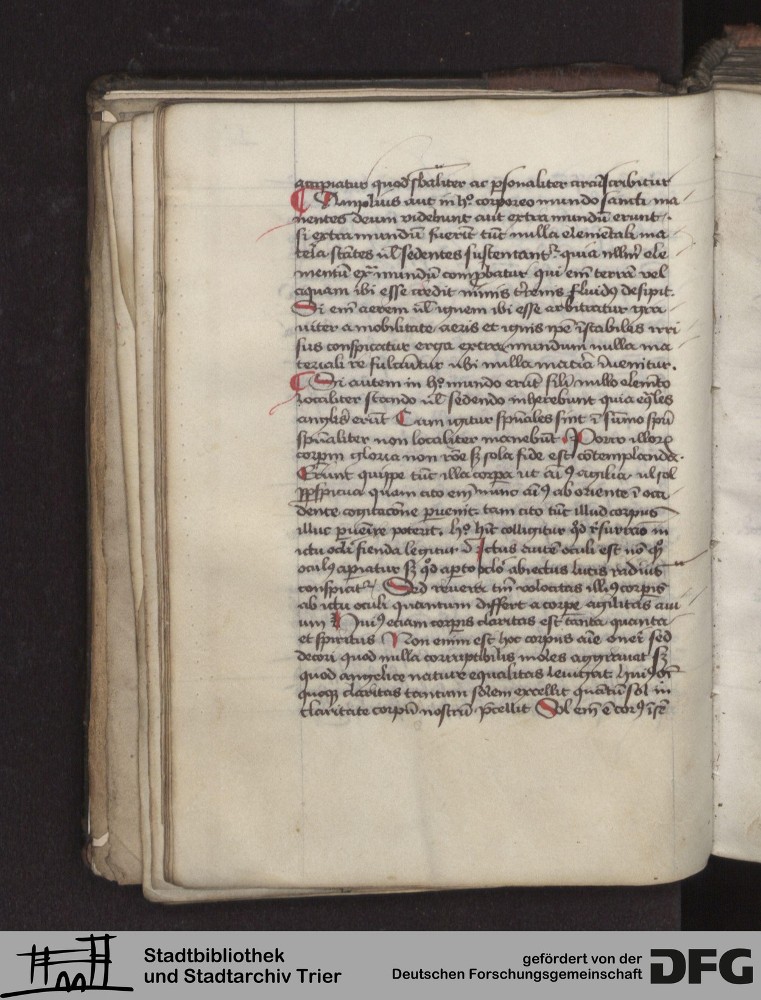 accipiatur quod sbaliter ac psonaliter circūscribitur
Amplius aut in hº corporeo mundo sancti ma
nentes deum videbunt aut extra mundū erunt.
si extra mundū fuerīt tūc nulla elemētali ma
teria stātes ul sedentes sustentantr quia nllm ele
mentū exª mundū comprobatur qui em terrā vel
aquam ibi esse credit nimis fluidus desipit.
Si em aerem ul ignem ibi esse arbitratur gra
uiter a mobilitate aeris et ignis ipe īstabiles irri
sus conspicatur erga extra mundum nulla ma
teriali re fulcūtur ubi nulla matia īuenitur.
Si autem in hº mundo erūt nullo elemēto
localiter stando ul sedendo inherebunt quia eqles
anglis erūt Cum igitur spūales sint ī sūmo spū
spūaliter non localiter manebūt Porro illorꝫ
corpm gloria non rōe sꝫ sola fide est cōtemplanda.
Erunt quippe tūc illa corpa ut agilia ul sol
pspicua quam cito em nunc ab oriente ī occi
dente cogitacōne puenit. tam cito tūc illud corpus
illuc puenire poterit. hº hīc colligitur qd resurrectio in
ictu oculi fienda legitur Ictus autē oculi est nō
oculꝰ apiatur sꝫ qd apto oclo abiectus lucis radius
conspicatr Sed reuera tm volocitas illiꝰ corpis
ab ictu oculi quantum differt a corpe agilitas ani
um Huiꝰ eciam corpis claritas est tanta quanta
et spiritus Non enim est hoc corpus aīe oneri sed
decori quod nulla corruptibilis moles aggrauat sꝫ
quod angelice nature equalitas leuigat. Huiꝰ
quoqꝫ claritas tantum solem excellit quātū sol in
claritate corpus nostrū pcellit Sol em ē
Stadtbibliothek
und Stadtarchiv Trier
gefördert von der
Deutschen Forschungsgemeinschaft
DFG